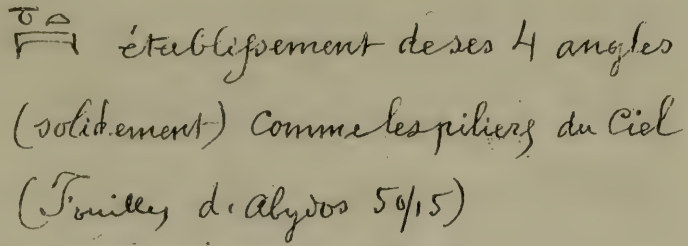 établissement de ses 4 angles
(solidement) comme les piliers du Ciel
(Fouilles d'Abydos 50/15)